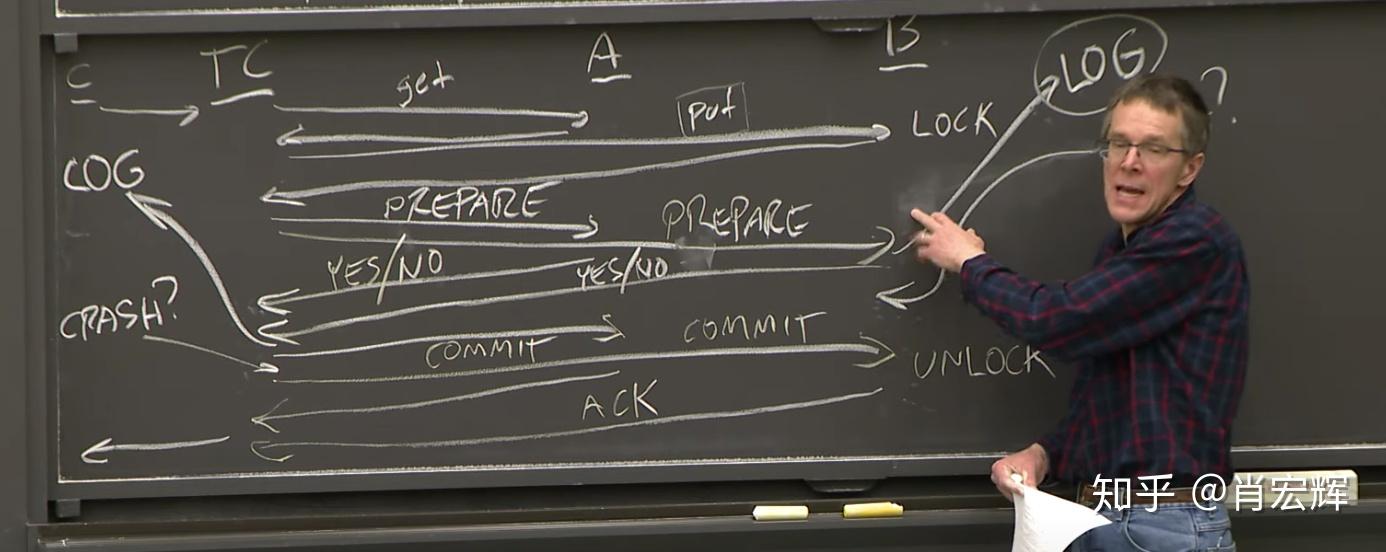 C TC get A B LOG ?
put LOCK
LOG
PREPARE PREPARE
YES/NO YES/NO
CRASH? COMMIT COMMIT
UNLOCK
ACK
知乎 @肖宏辉